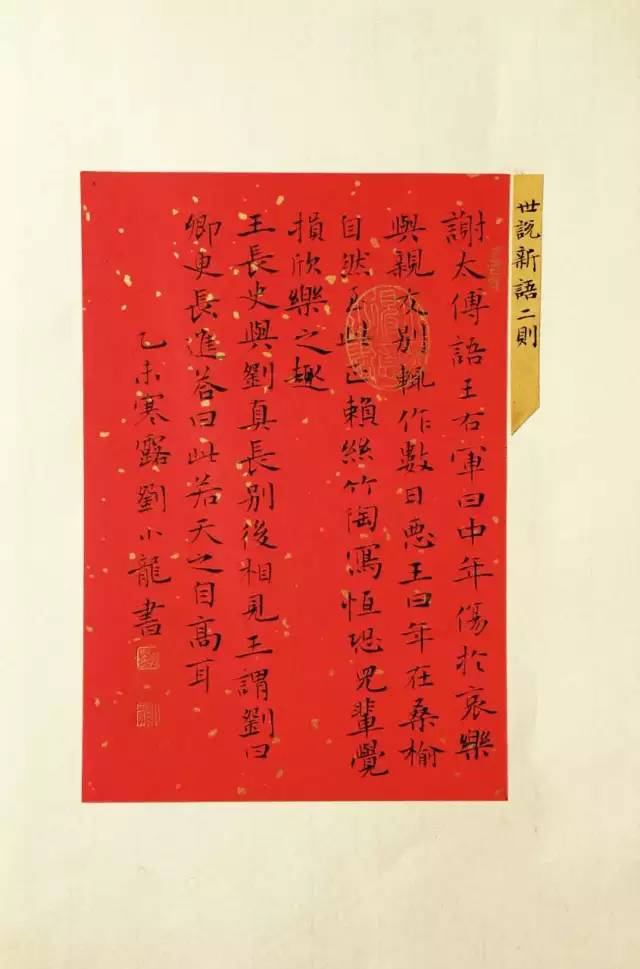 世説新語二則
謝太傅語王右軍曰中年傷於哀樂
與親友別輒作數日惡王曰年在桑榆
自然至此正賴絲竹陶寫恒恐兒輩覺
損欣樂之趣
王長史與劉真長別後相見王謂劉曰
卿更長進答曰此若天之自高耳
乙未寒露劉小龍書